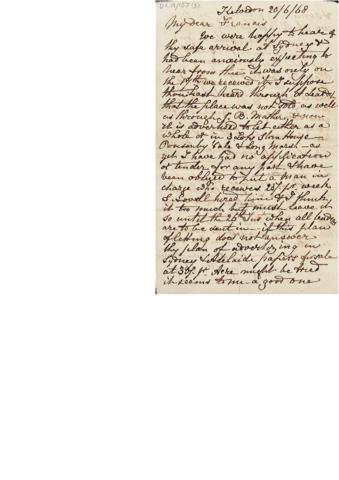 Kelvedon 20/6/68
My dear Francis
We were happy to hear of
thy safe arrival at Sydney &
had been anxiously expecting to
hear from thee it was only on
the we received it I suppose
thou hast heard through
that the place was not sold as well
as through J. B. Mather, & now
it is advertised to let either as a
whole or in 3 lots Stone House
Ponsonby Vale & Long Marsh - as
yet I have had no application
or tender for any part I have
been obliged to put a man in
charge who receives 25/ pr week
S. Lovell hired him & I think
it too much but must leave it
so until the 26 Inst when all tenders
are to be sent in - if this plan
of letting does not answer
thy plan of advertizing in
Sydney & Adelaide papers for sale
at pr Acre might be tried
it seems to me a good one